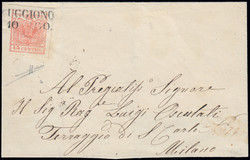 UGGIONO
10 GO.
Al Pregiatis. Signore
Il Sigr. Rag. Luigi Osculati
Terraggio di S. Carlo
Milano